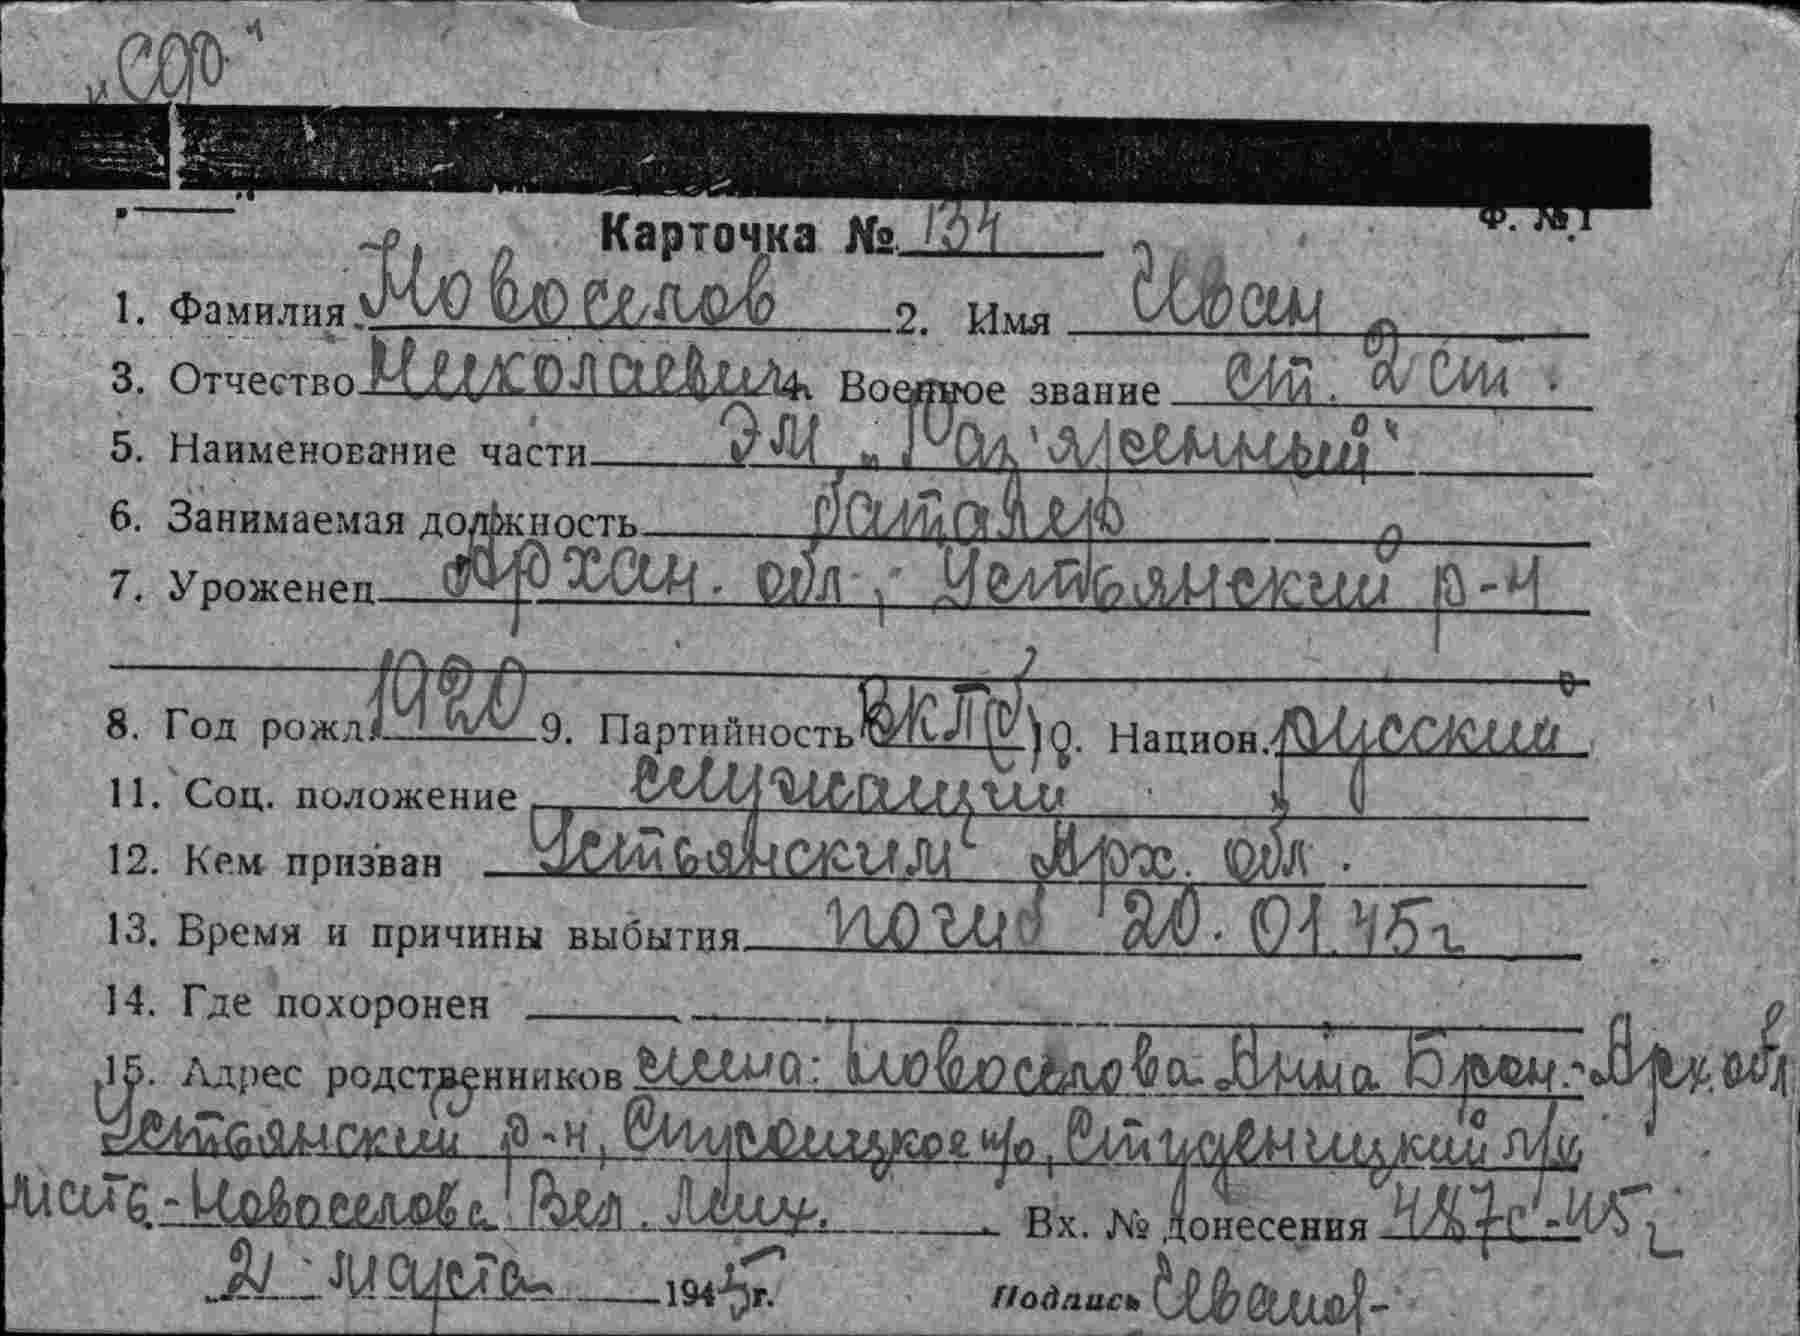 „СФ"
Ф. №1
Карточка № 134
1. Фамилия Новоселов 2. Имя Иван
3. Отчество Николаевич 4. Военное звание ст. 2 ст.
5. Наименование части ЭМ „Раз'яренный"
6. Занимаемая должность баталер
7. Уроженец Архан. обл., Устьянский р-н
8. Год рожд. 1920 9. Партийность ВКП(б) 10. Национ. русский
11. Соц. положение служащий
12. Кем призван Устьянским Арх. обл.
13. Время и причины выбытия погиб 20.01.45г
14. Где похоронен
15. Адрес родственников жена: Новоселова Анна Арх. обл
Устьянский р-н, с/с, Студеницкий
мать - Новоселова Вх. № донесения 487с-45г
2 марта 1945г. Подпись Иванов